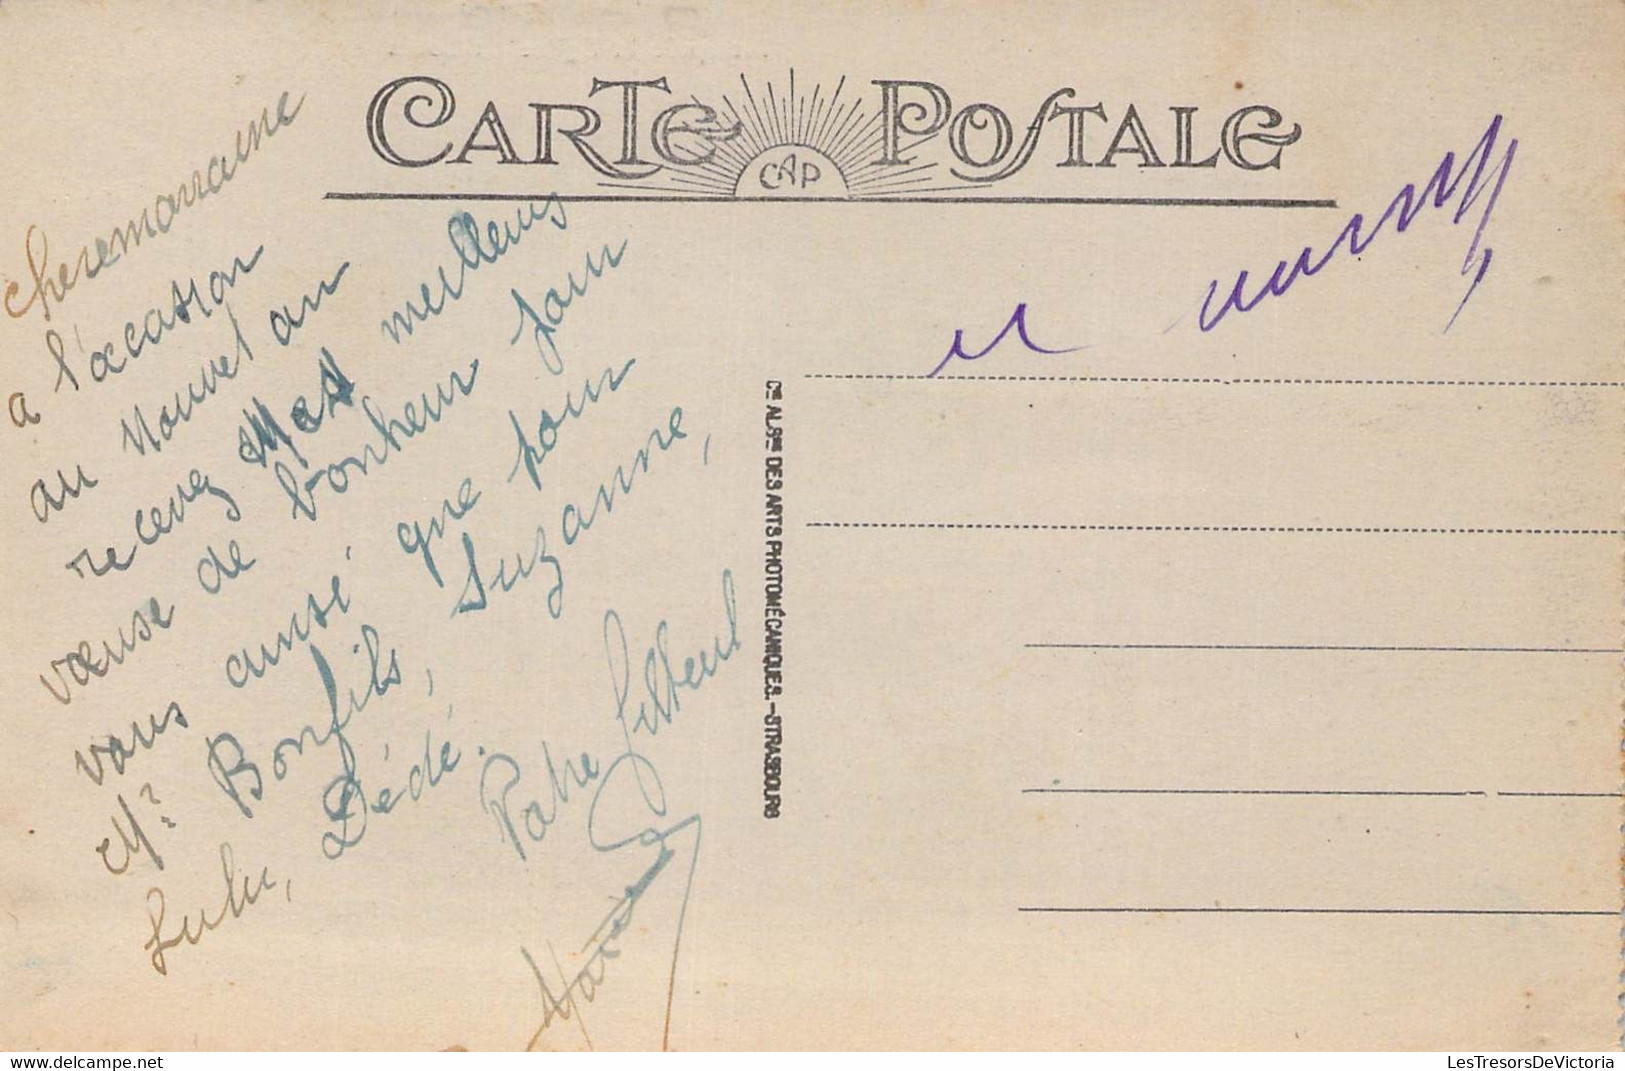 CARTE POSTALE
CAP
Chere marraine
a l'ocasion
au Nouvel an
recevez mes meilleurs
vœuse de bonheur pour
vous ausi que pour
Mr Bonfils, Suzanne,
Lulu, Dédé.
Votre filleul
Cie ALSne DES ARTS PHOTOMÉCANIQUES. - STRASBOURG
LesTresorsDeVictoria